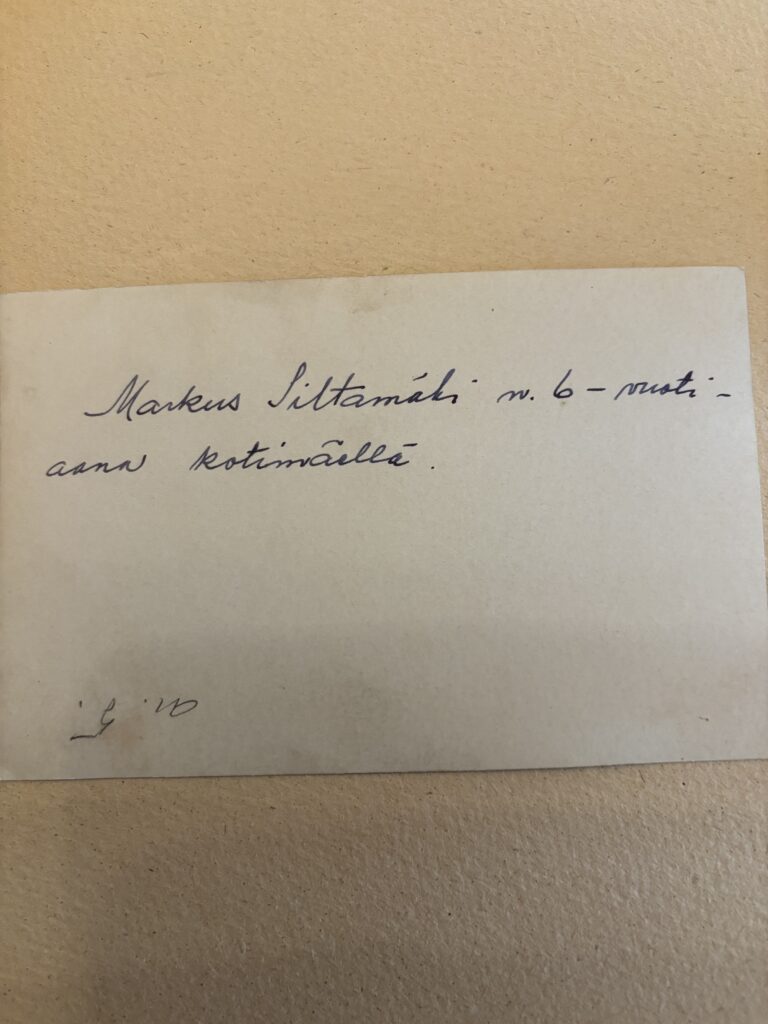 Markus Siltamäki n. 6-vuoti-
aana kotimäellä.